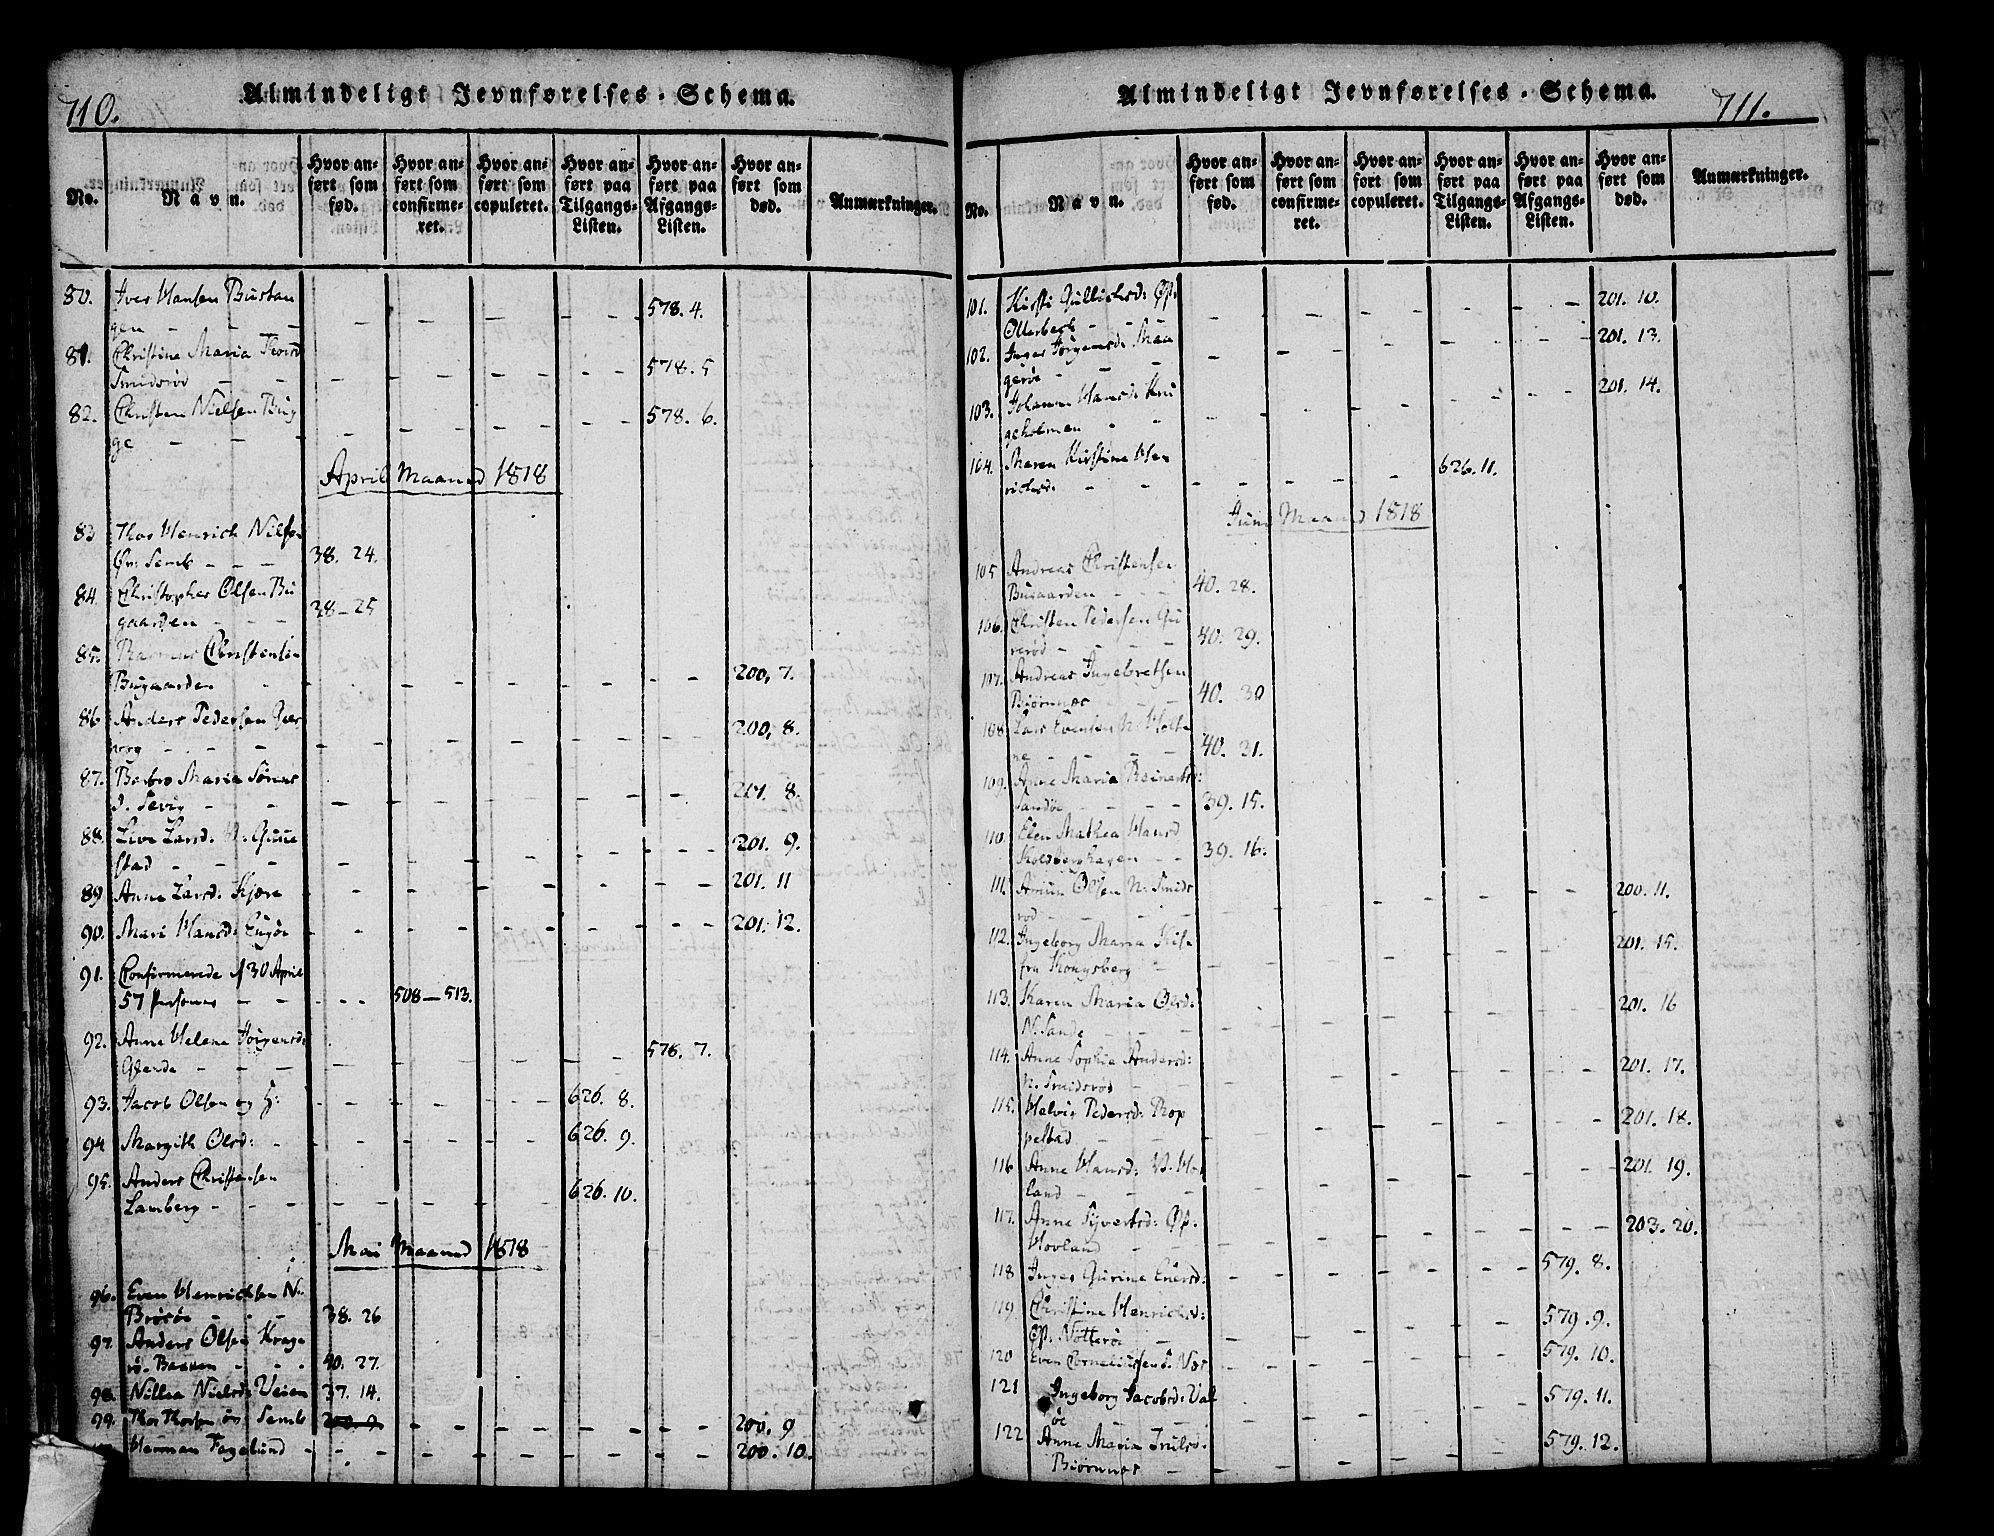 710.
Almindeligt Jevnførelses-Schema.
No.
Navn.
Hvor anført som fød.
Hvor anført som confirmeret.
Hvor anført som copuleret.
Hvor anført paa Tilgangs-Listen.
Hvor anført paa Afgangs-Listen.
Hvor anført som død.
Anmærkninger.
80. Iver Hansen Bustan
gen - - - 578. 4.
81. Christine Maria Thorsd
Smidsrød - - 578. 5
82. Christen Nielsen Bug
ge - - - 578. 6.
April Maaned 1818
83 Thor Henrich Nilsen
Øv: Semb - - - 38. 24.
84. Christopher Olsen Bu
gaarden - - - 38-25
85. Rasmus Christensen
Bugaarden - 200, 7.
86 Anders Pedersen
- - - 200, 8.
87. Barbro Maria Sørens
d. Sevig - - 201. 8.
88. Live Larsd:
stad - - - 201. 9.
89 Anne Larsd: Kjære - 201. 11
90. Mari Hansd: Engøe - 201. 12.
91. Confirmerede d 30 April
57 Personer - - - 508-513.
92. Anne Helene Jørgensd:
- - - 578. 7.
93. Jacob Olsen og H: - 626. 8.
94 Margith Olsd: - 626. 9.
95. Anders Christensen
Lamberg - - - 626. 10.
Mai Maaned 1818
96. Even Henrichsen N.
Brøsøe - - 38. 26
97. Anders Olsen Krage
rø. - - - 40. 27.
98. Nillea Nielsd: Veien 37. 14.
99. Thor Thorsen øv Semb 200. 9 - 200. 9
Herman Fagelund - 200. 10.
711.
Almindeligt Jevnførelses-Schema.
No.
Navn.
Hvor anført som fød.
Hvor anført som confirmeret.
Hvor anført som copuleret.
Hvor anført paa Tilgangs-Listen.
Hvor anført paa Afgangs-Listen.
Hvor anført som død.
Anmærkninger.
101. Kirsti Gullichsd: Øf:
Ollerbech - - - 201. 10.
102. Inger Jørgensd: Mau
gerøe - - - 201. 13.
103. Johanne Hansd: Knu
geholmen - - 201. 14.
104. Maren Kirstine Hen
richsd. - - 626. 11.
Juni Maaned 1818
105 Andreas Christensen
Bugaarden - - - 40. 28.
106. Christen Pedersen Gu
rerød - - - 40. 29.
107. Andreas Ingebretsen
Biørnnes - - - 40. 30
108 Lars Evensen N. Holte
ne - - - 40. 21.
109. Anne Maria Reinerts:
Sandøe - - - 39. 15.
110. Elen Mathea Hansd
Kolsberghagen - - 39. 16.
111. Olsen N. Smids
rød - - - 200. 11.
112. Ingeborg Maria
fra Kongsberg - 201. 15.
113. Karen Maria Olsd:
N. Sande - - - 201. 16
114. Anne Sophia Andersd:
N. Smidsrød - - 201. 17.
115. Helvig Pedersd: Rop
pestad - - - 201. 18.
116 Anne Hansd: V. Ho
land - - - 201. 19.
117. Anne Syvertsd: Øf.
Hovland - - 203. 20.
118 Inger Gurine Enersd: - 579. 8.
119 Christine Henrichsd:
Øf. Nøtterøe - - 579. 9.
120 Even Corneliussen S. Næs 579. 10.
121 Ingeborg Jacobsd: Val
øe 579. 11.
122 Anne Maria Truelsd.
Biørnnes - - 579. 12.